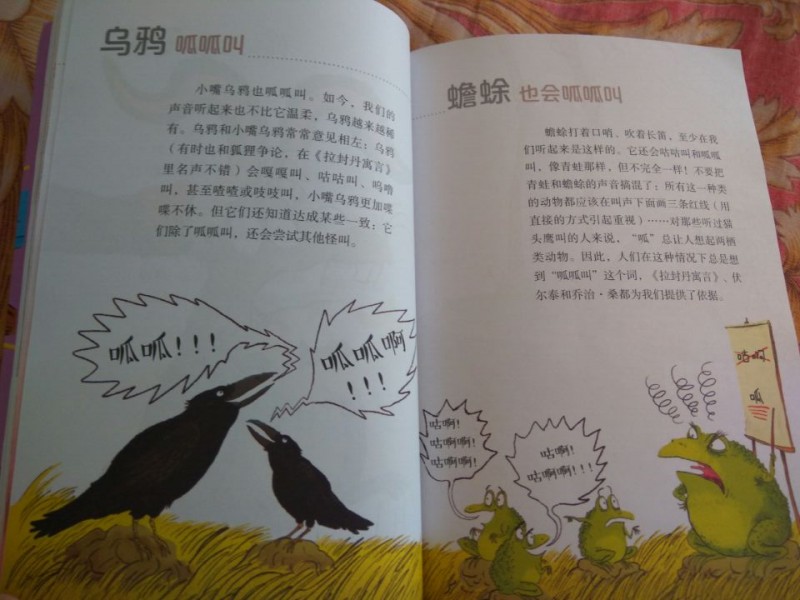 乌鸦 呱呱叫
小嘴乌鸦也呱呱叫。如今，我们的
声音听起来也不比它温柔，乌鸦越来越稀
有。乌鸦和小嘴乌鸦常常意见相左：乌鸦
（有时也和狐狸争论，在《拉封丹寓言》
里名声不错）会嘎嘎叫、咕咕叫、呜噜
叫，甚至喳喳或吱吱叫，小嘴乌鸦更加喋
喋不休。但它们还知道达成某些一致：它
们除了呱呱叫，还会尝试其他怪叫。
呱呱！！！
呱呱啊
！！！
蟾蜍 也会呱呱叫
蟾蜍打着口哨、吹着长笛，至少在我
们听起来是这样的。它还会咕咕叫和呱呱
叫，像青蛙那样，但不完全一样！不要把
青蛙和蟾蜍的声音搞混了；所有这一种类
的动物都应该在叫声下面画三条红线（用
直接的方式引起重视）……对那些听过猫
头鹰叫的人来说，“呱”总让人想起两栖
类动物。因此，人们在这种情况下总是想
到“呱呱叫”这个词，《拉封丹寓言》、伏
尔泰和乔治·桑都为我们提供了依据。
咕啊！
咕啊啊！
咕啊啊！
咕啊！
咕啊啊！！！
咕啊
呱